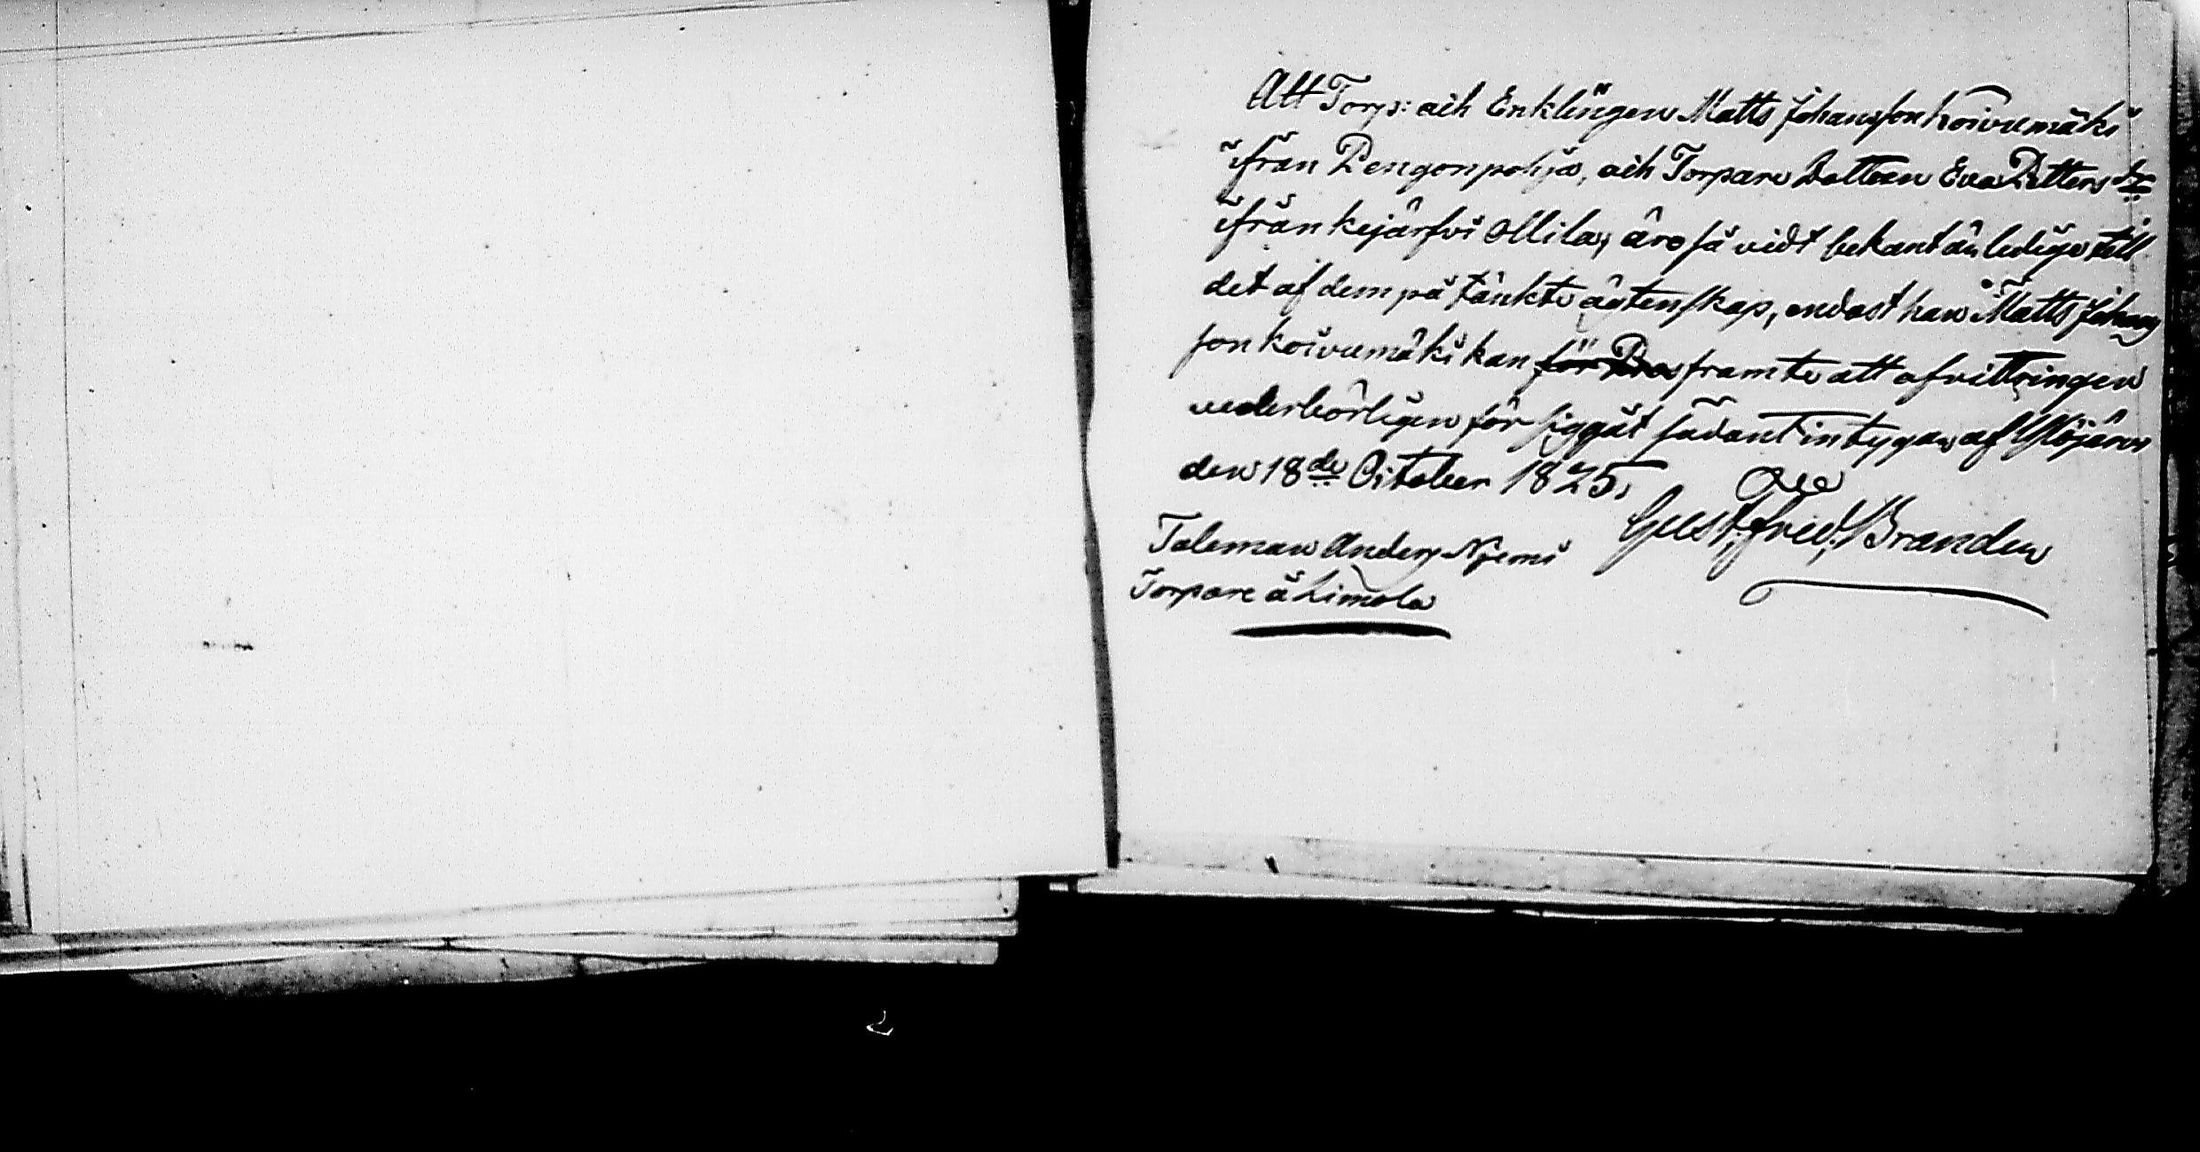 Att Torp: ock Enklingen Matts Johansson Koivumäki
ifrån Pengonpohja, ock Torpare Dottren Eva Petters dr
ifrån Kejärfvi Ollila, äro så vidt bekant är ledige till
det af dem på tänkte ägtenskap, endast han Matts Johans
son Koivumäki kan för Pros framte att afvittringen
vederbörligen för siggåt sådant intygas af Ylöjärvi
den 18de October 1825.
Gust. Fred. Brander
Taleman Anders Njemi
Torpare å Limola